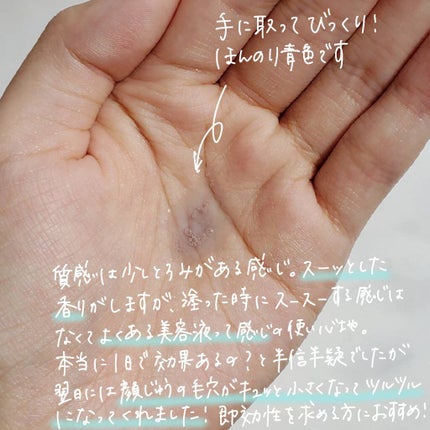 手に取ってびっくり!
ほんのり青色です
質感は少しとろみがある感じ。スーッとした
香りがしますが、塗った時にスースーする感じは
なくてよくある美容液って感じの使い心地。
本当に1日で効果あるの?と半信半疑でしたが
翌日には顔じゅうの毛穴がキュッと小さくなってツルツル
になってくれました!即効性を求める方におすすめ!